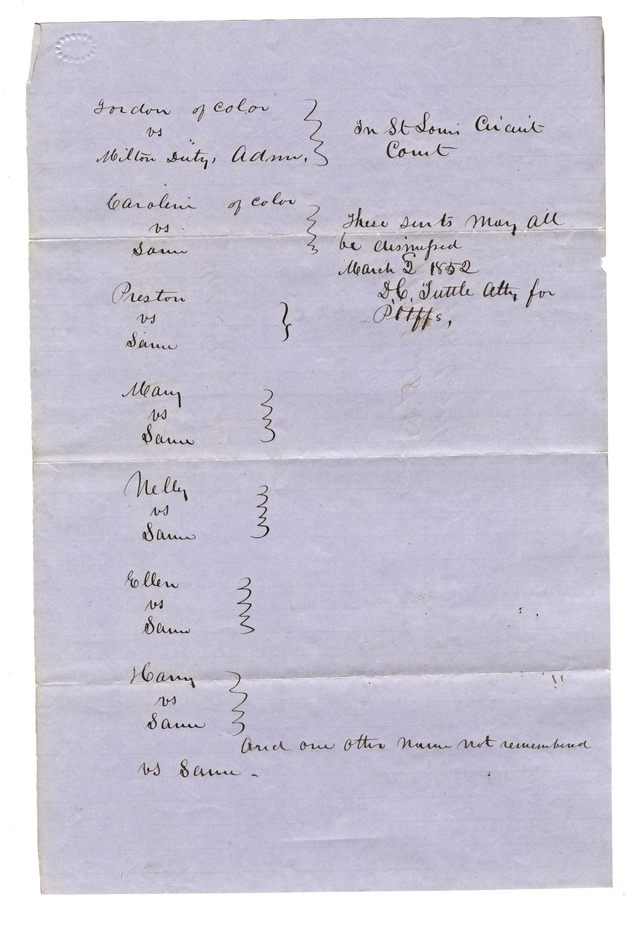 Gordon of color
vs
Milton Duty, Admr.
In St Louis Circuit
Court
Caroline of color
vs
Same
These suits may all
be dismissed
March 1852
D.C. Tuttle Atty for
Pltffs,
Preston
vs
Same
Mary
vs
Same
Nelly
vs
Same
Ellen
vs
Same
Harry
vs
Same
And one other name not remembered
vs Same.